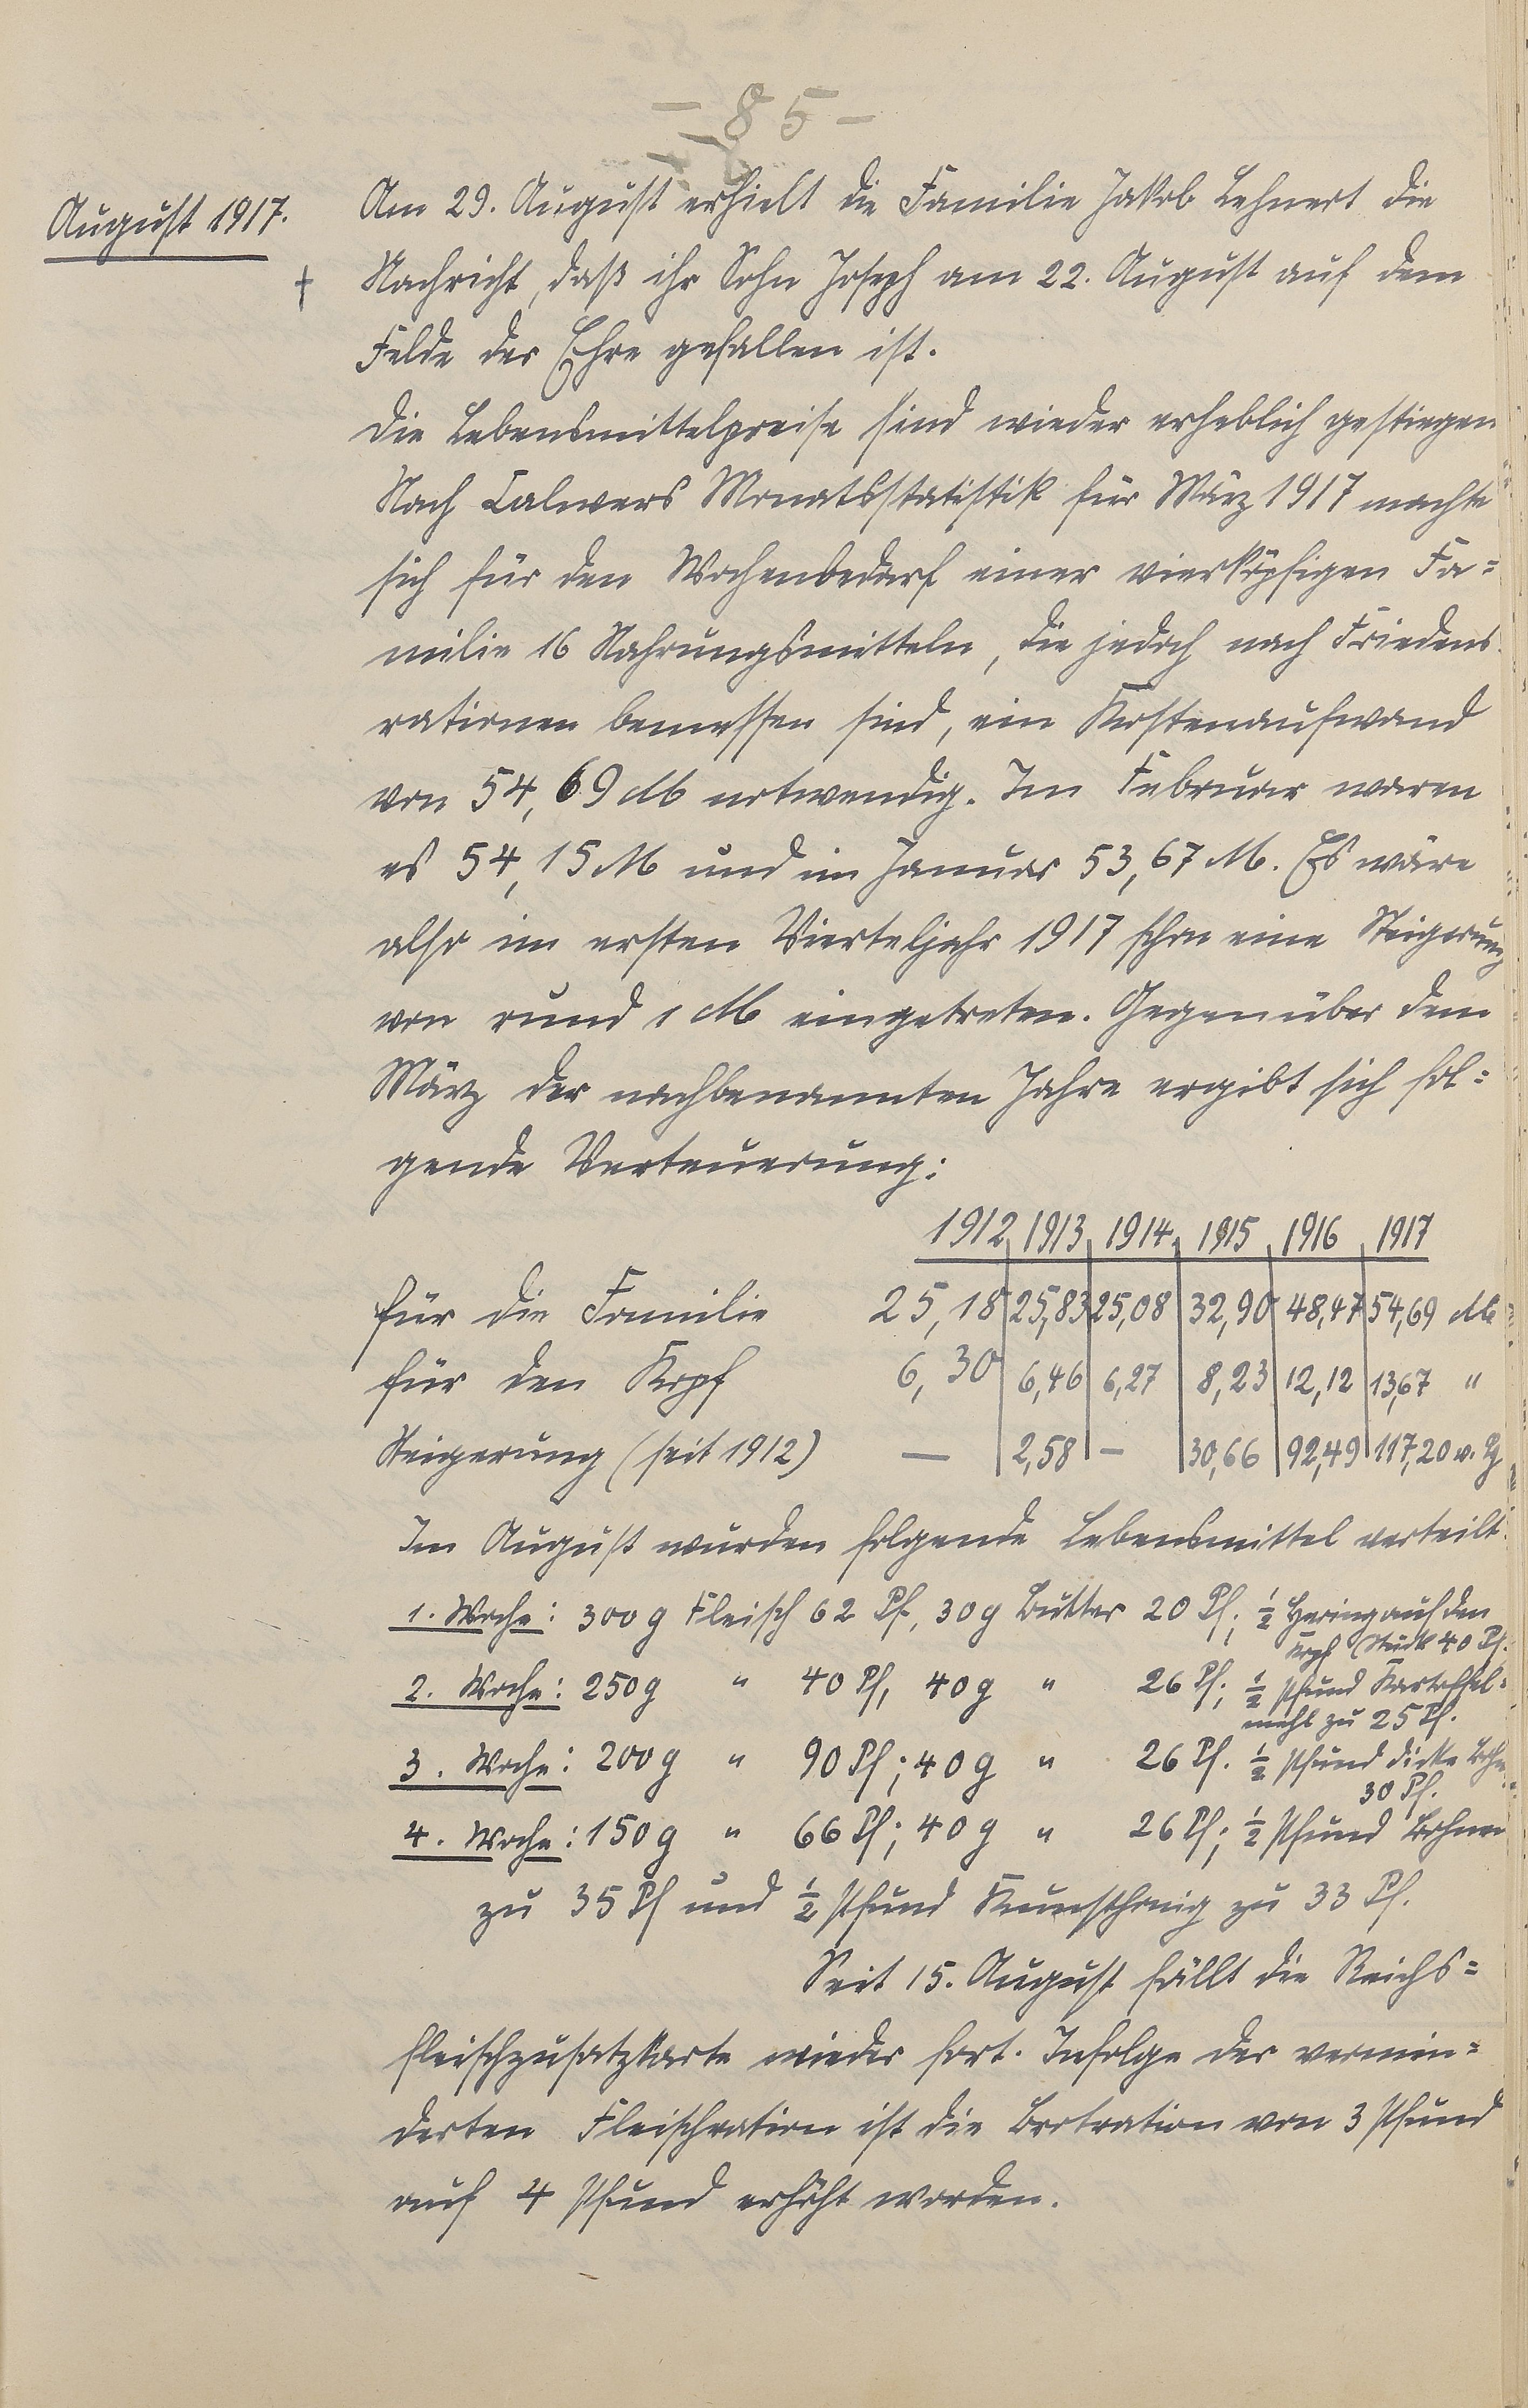 - 85 -
August 1917.
Am 29. August erhielt die Familie Jakob Lehnert die
† Nachricht, daß ihr Sohn Joseph am 22. August auf dem
Felde der Ehre gefallen ist.
Die Lebensmittelpreise sind wieder erheblich gestiegen
Nach Calwers Monatsstatistik für März 1917 machte
sich für den Wochenbedarf einer vierköpfigen Fa=
milie 16 Nahrungsmitteln, die jedoch nach Friedens
rationen bemessen sind, ein Kostenaufwand
von 54,69 M notwendig. Im Februar waren
es 54,15 M und im Januar 53,67 M. Es wäre
also im ersten Vierteljahr 1917 schon eine Steigerung
von rund 1 M eingetreten. Gegenüber dem
März der nachbenannten Jahre ergibt sich fol=
gende Verteuerung:
1912 1913 1914 1915 1916 1917
für die Familie 25,18 25,83 25,08 32,90 48,47 54,69 M
für den Kopf 6,30 6,46 6,27 8,23 12,12 13,67 "
Steigerung (seit 1912) — 2,58 — 30,66 92,49 117,20 v. H
Im August wurden folgende Lebensmittel verteilt:
1. Woche: 300 g Fleisch 62 Pf, 30 g Butter 20 Pf; ½ Hering auf den
Kopf Stück 40 Pf.
2. Woche: 250 g " 40 Pf, 40 g " 26 Pf; ½ Pfund Kartoffel=
mehl zu 25 Pf.
3. Woche: 200 g " 90 Pf; 40 g " 26 Pf. ½ Pfund dicke Bohnen
30 Pf.
4. Woche: 150 g " 66 Pf; 40 g " 26 Pf; ½ Pfund Bohnen
zu 35 Pf und ½ Pfund Kunsthonig zu 33 Pf.
Seit 15. August fällt die Reichs=
fleischzusatzkarte wieder fort. Infolge der vermin=
derten Fleischration ist die Brotration von 3 Pfund
auf 4 Pfund erhöht worden.